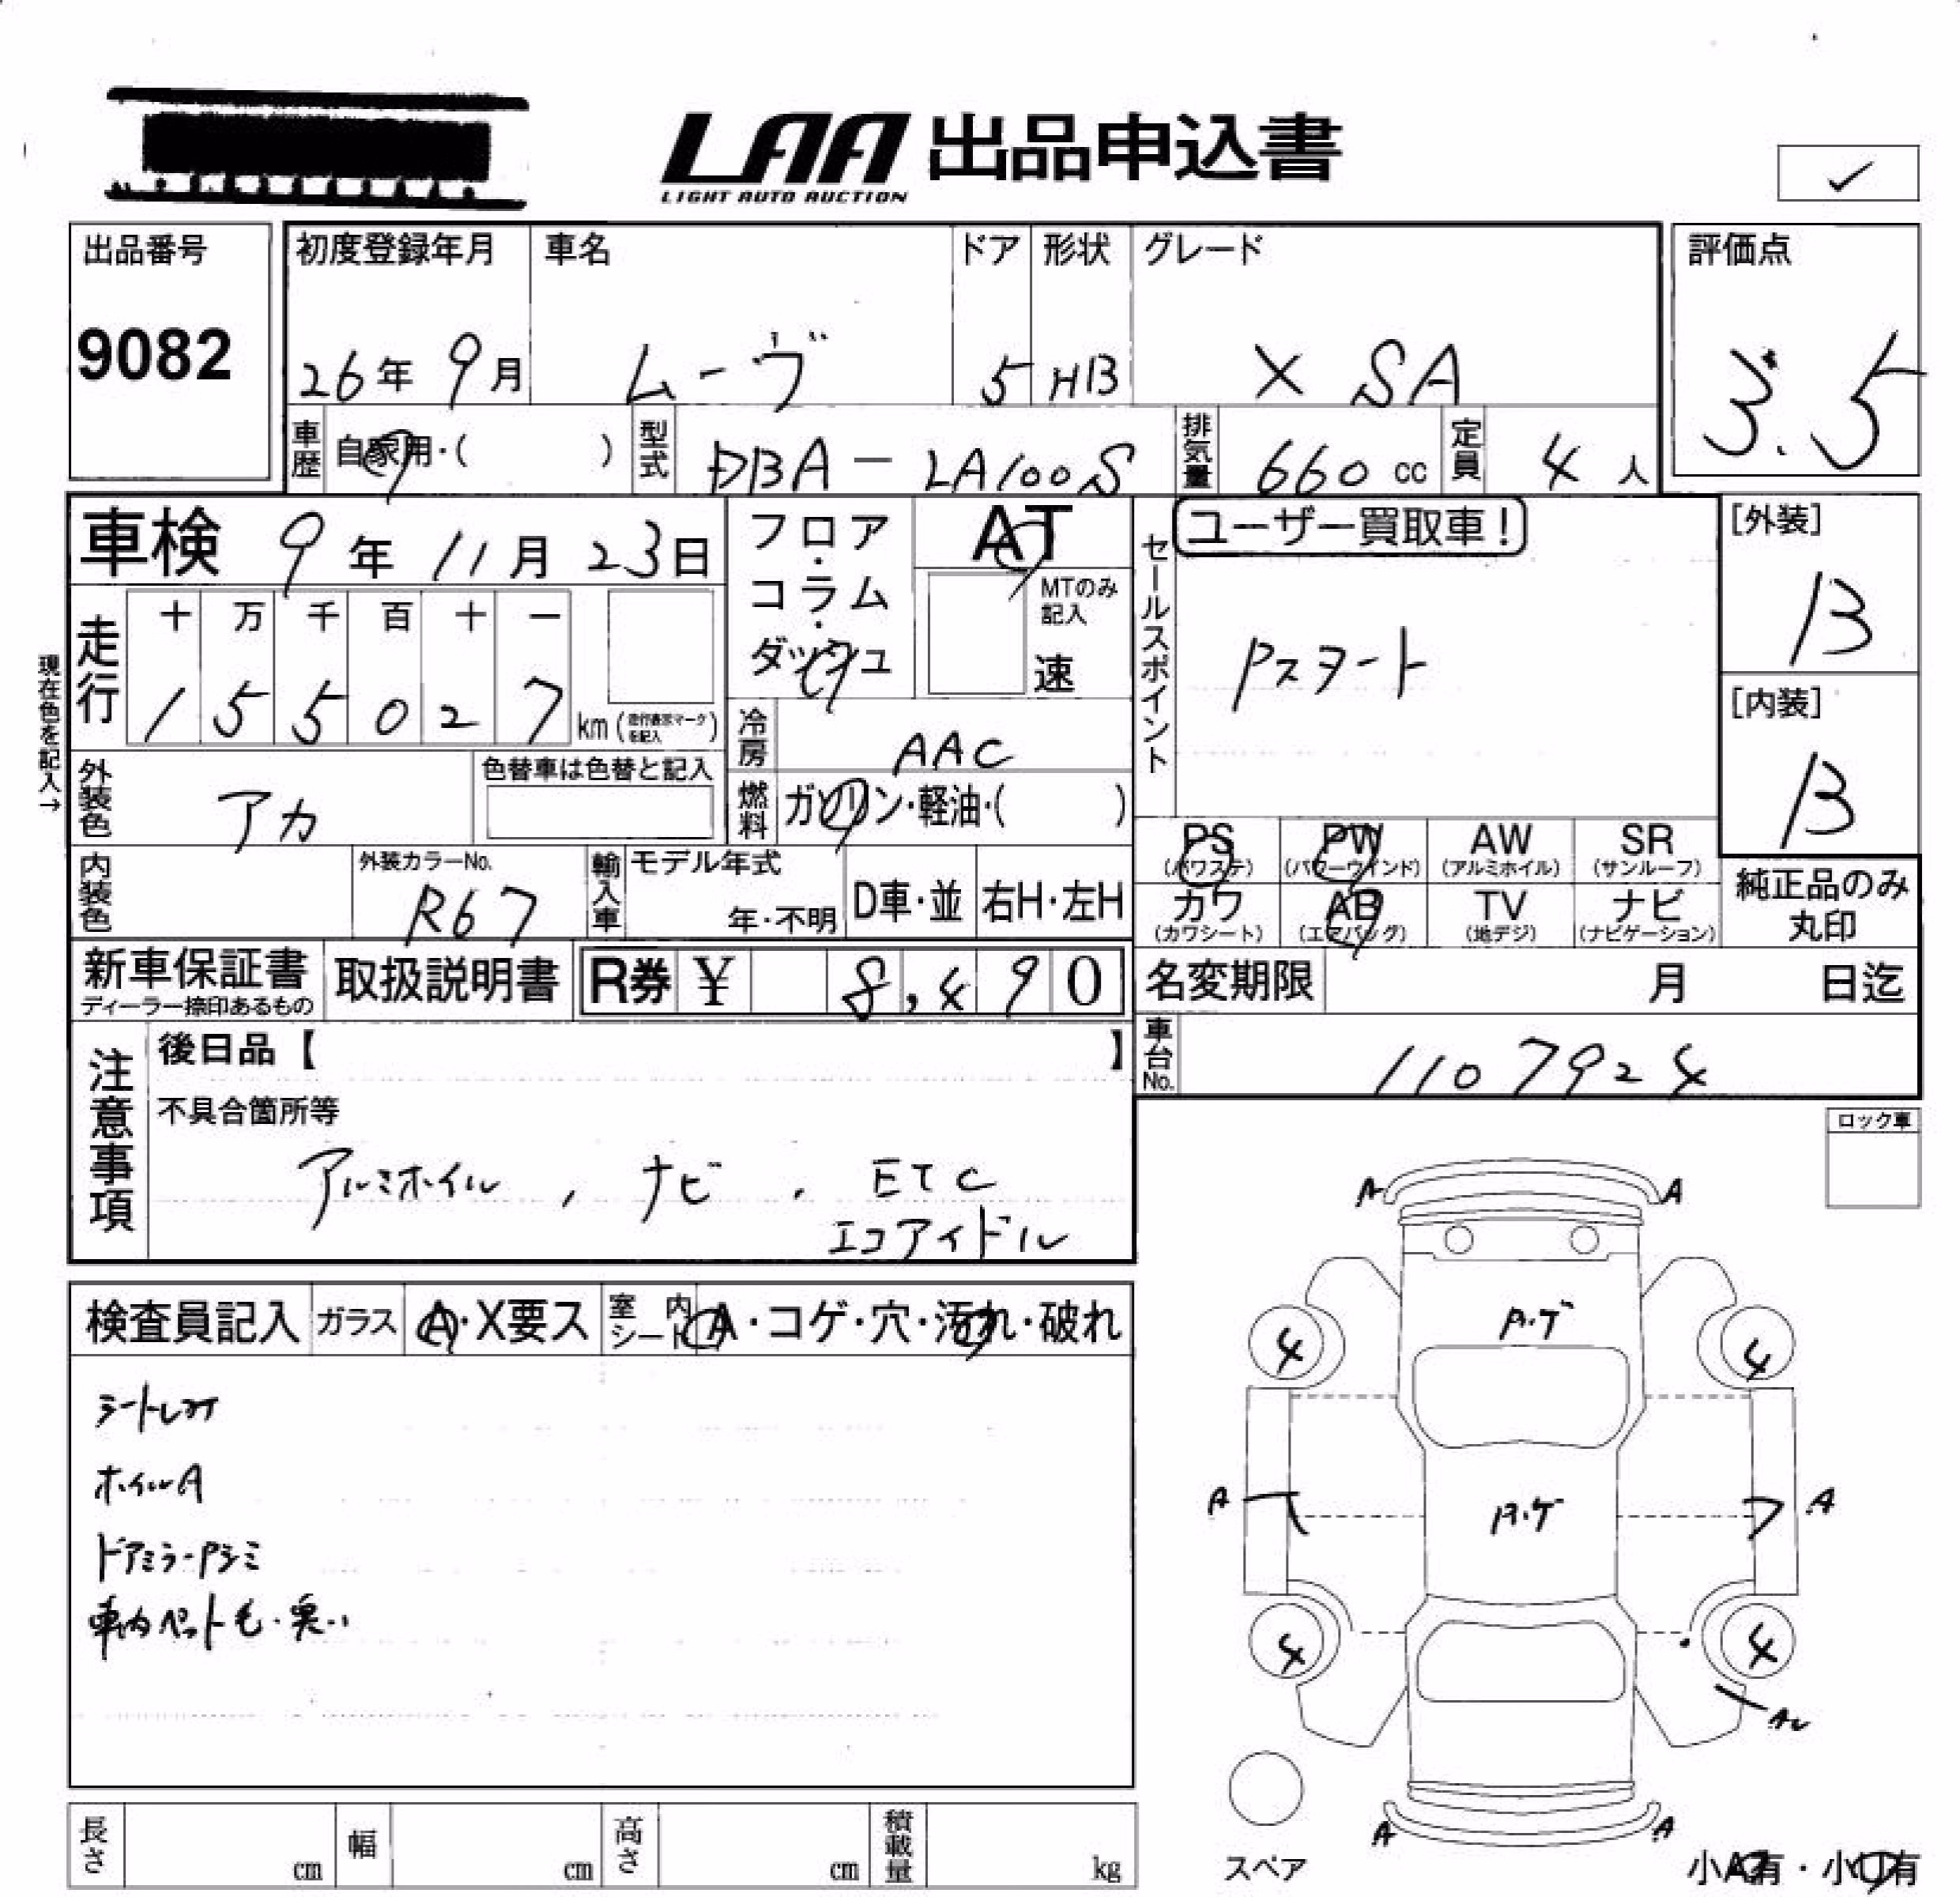 LAA 出品申込書
LIGHT AUTO AUCTION
✓
出品番号
9082
初度登録年月
26年 9月
車名
ムーヴ
ドア
5
形状
HB
グレード
X SA
評価点
3.5
車歴
自家用・( )
型式
DBA-LA100S
排気量
660 cc
定員
4 人
車検 9年 11月 23日
フロア・コラム・ダッシュ
AT
MTのみ記入
速
セールスポイント
ユーザー買取車!
Pスタート
[外装]
B
[内装]
B
現在色を記入→
走行
十 万 千 百 十 一
1 5 5 0 2 7 km (走行表示マークを記入)
冷房
AAC
燃料
ガソリン・軽油・( )
外装色
アカ
色替車は色替と記入
内装色
外装カラーNo.
R67
輸入車
モデル年式
年・不明
D車・並
右H・左H
PS (パワステ)
PW (パワーウインド)
AW (アルミホイル)
SR (サンルーフ)
カワ (カワシート)
AB (エアバッグ)
TV (地デジ)
ナビ (ナビゲーション)
純正品のみ丸印
新車保証書
ディーラー捺印あるもの
取扱説明書
R券 ¥ 8,490
名変期限 月 日迄
車台No.
1107924
注意事項
後日品【 】
不具合箇所等
アルミホイル, ナビ, ETC
エコアイドル
ロック車
検査員記入
ガラス
A・X要ス
室内シート
A・コゲ・穴・汚れ・破れ
ホイルA
車内ペット毛・臭い
A A
A・ゲ
4 4
A A
A・ゲ
4 4
A A
スペア
小A有・小U有
長さ cm
幅 cm
高さ cm
積載量 kg